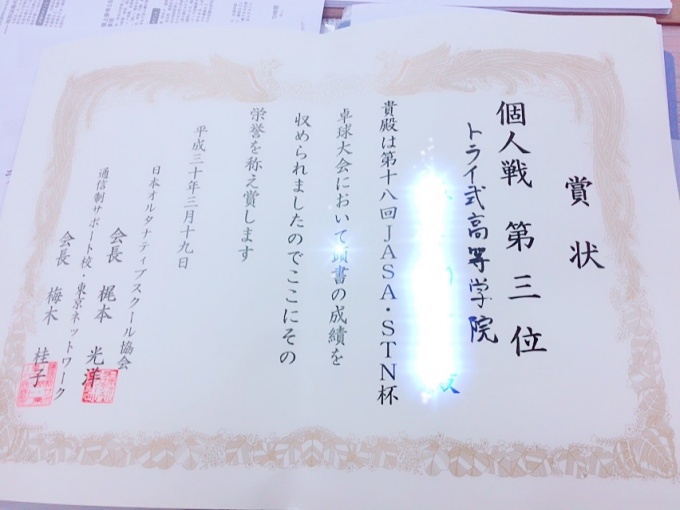 賞状
個人戦 第三位
トライ式高等学院
殿
貴殿は第十八回JASA・STN杯
卓球大会において頭書の成績を
収められましたのでここにその
栄誉を称え賞します
平成三十年三月十九日
日本オルタナティブスクール協会
会長 梶本 光洋
通信制サポート校・東京ネットワーク
会長 梅木 桂子